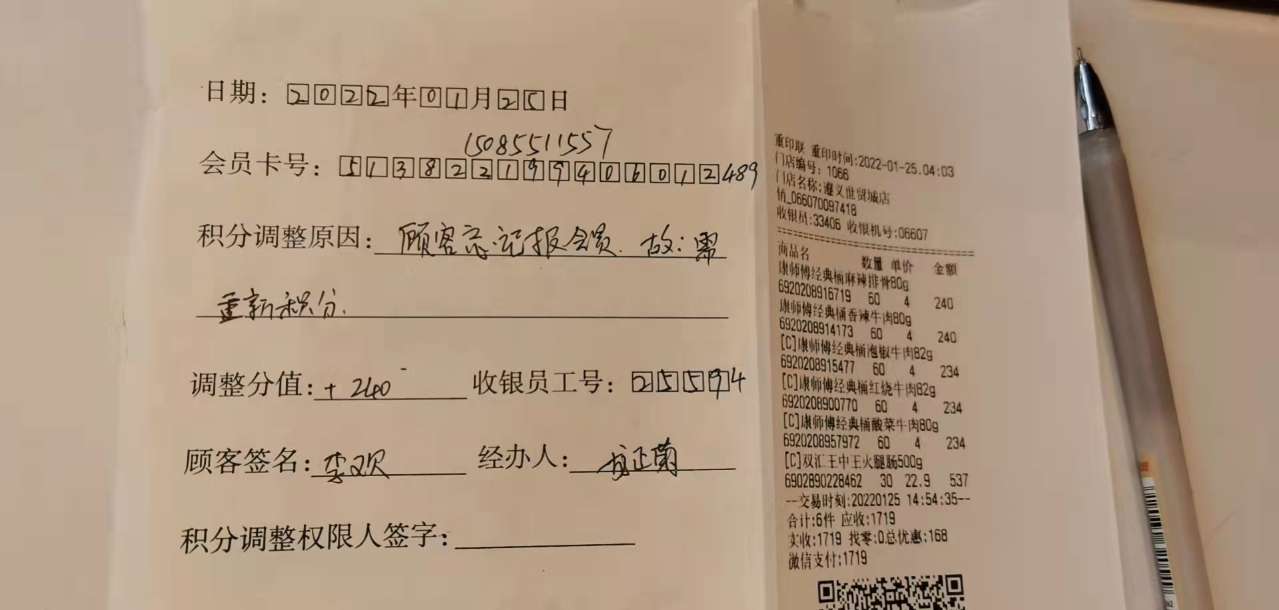 日期：2022年01月25日
15085511557
会员卡号：513822199406012489
积分调整原因：顾客忘记报会员.故：需
重新积分.
调整分值：+240 收银员工号：25594
顾客签名：李欢 经办人：正菊
积分调整权限人签字：
重印联 重印时间:2022-01-25.04:03
门店编号: 1066
门店名称:遵义世贸城店
销_066070097418
收银员:33406 收银机号:06607
商品名 数量 单价 金额
康师傅经典桶麻辣排骨80g
6920208916719 60 4 240
康师傅经典桶香辣牛肉80g
6920208914173 60 4 240
[C]康师傅经典桶泡椒牛肉82g
6920208915477 60 4 234
[C]康师傅经典桶红烧牛肉82g
6920208900770 60 4 234
[C]康师傅经典桶酸菜牛肉80g
6920208957972 60 4 234
[C]双汇王中王火腿肠500g
6902890228462 30 22.9 537
--交易时刻:20220125 14:54:35--
合计:6件 应收:1719
实收:1719 找零:0总优惠:168
微信支付:1719